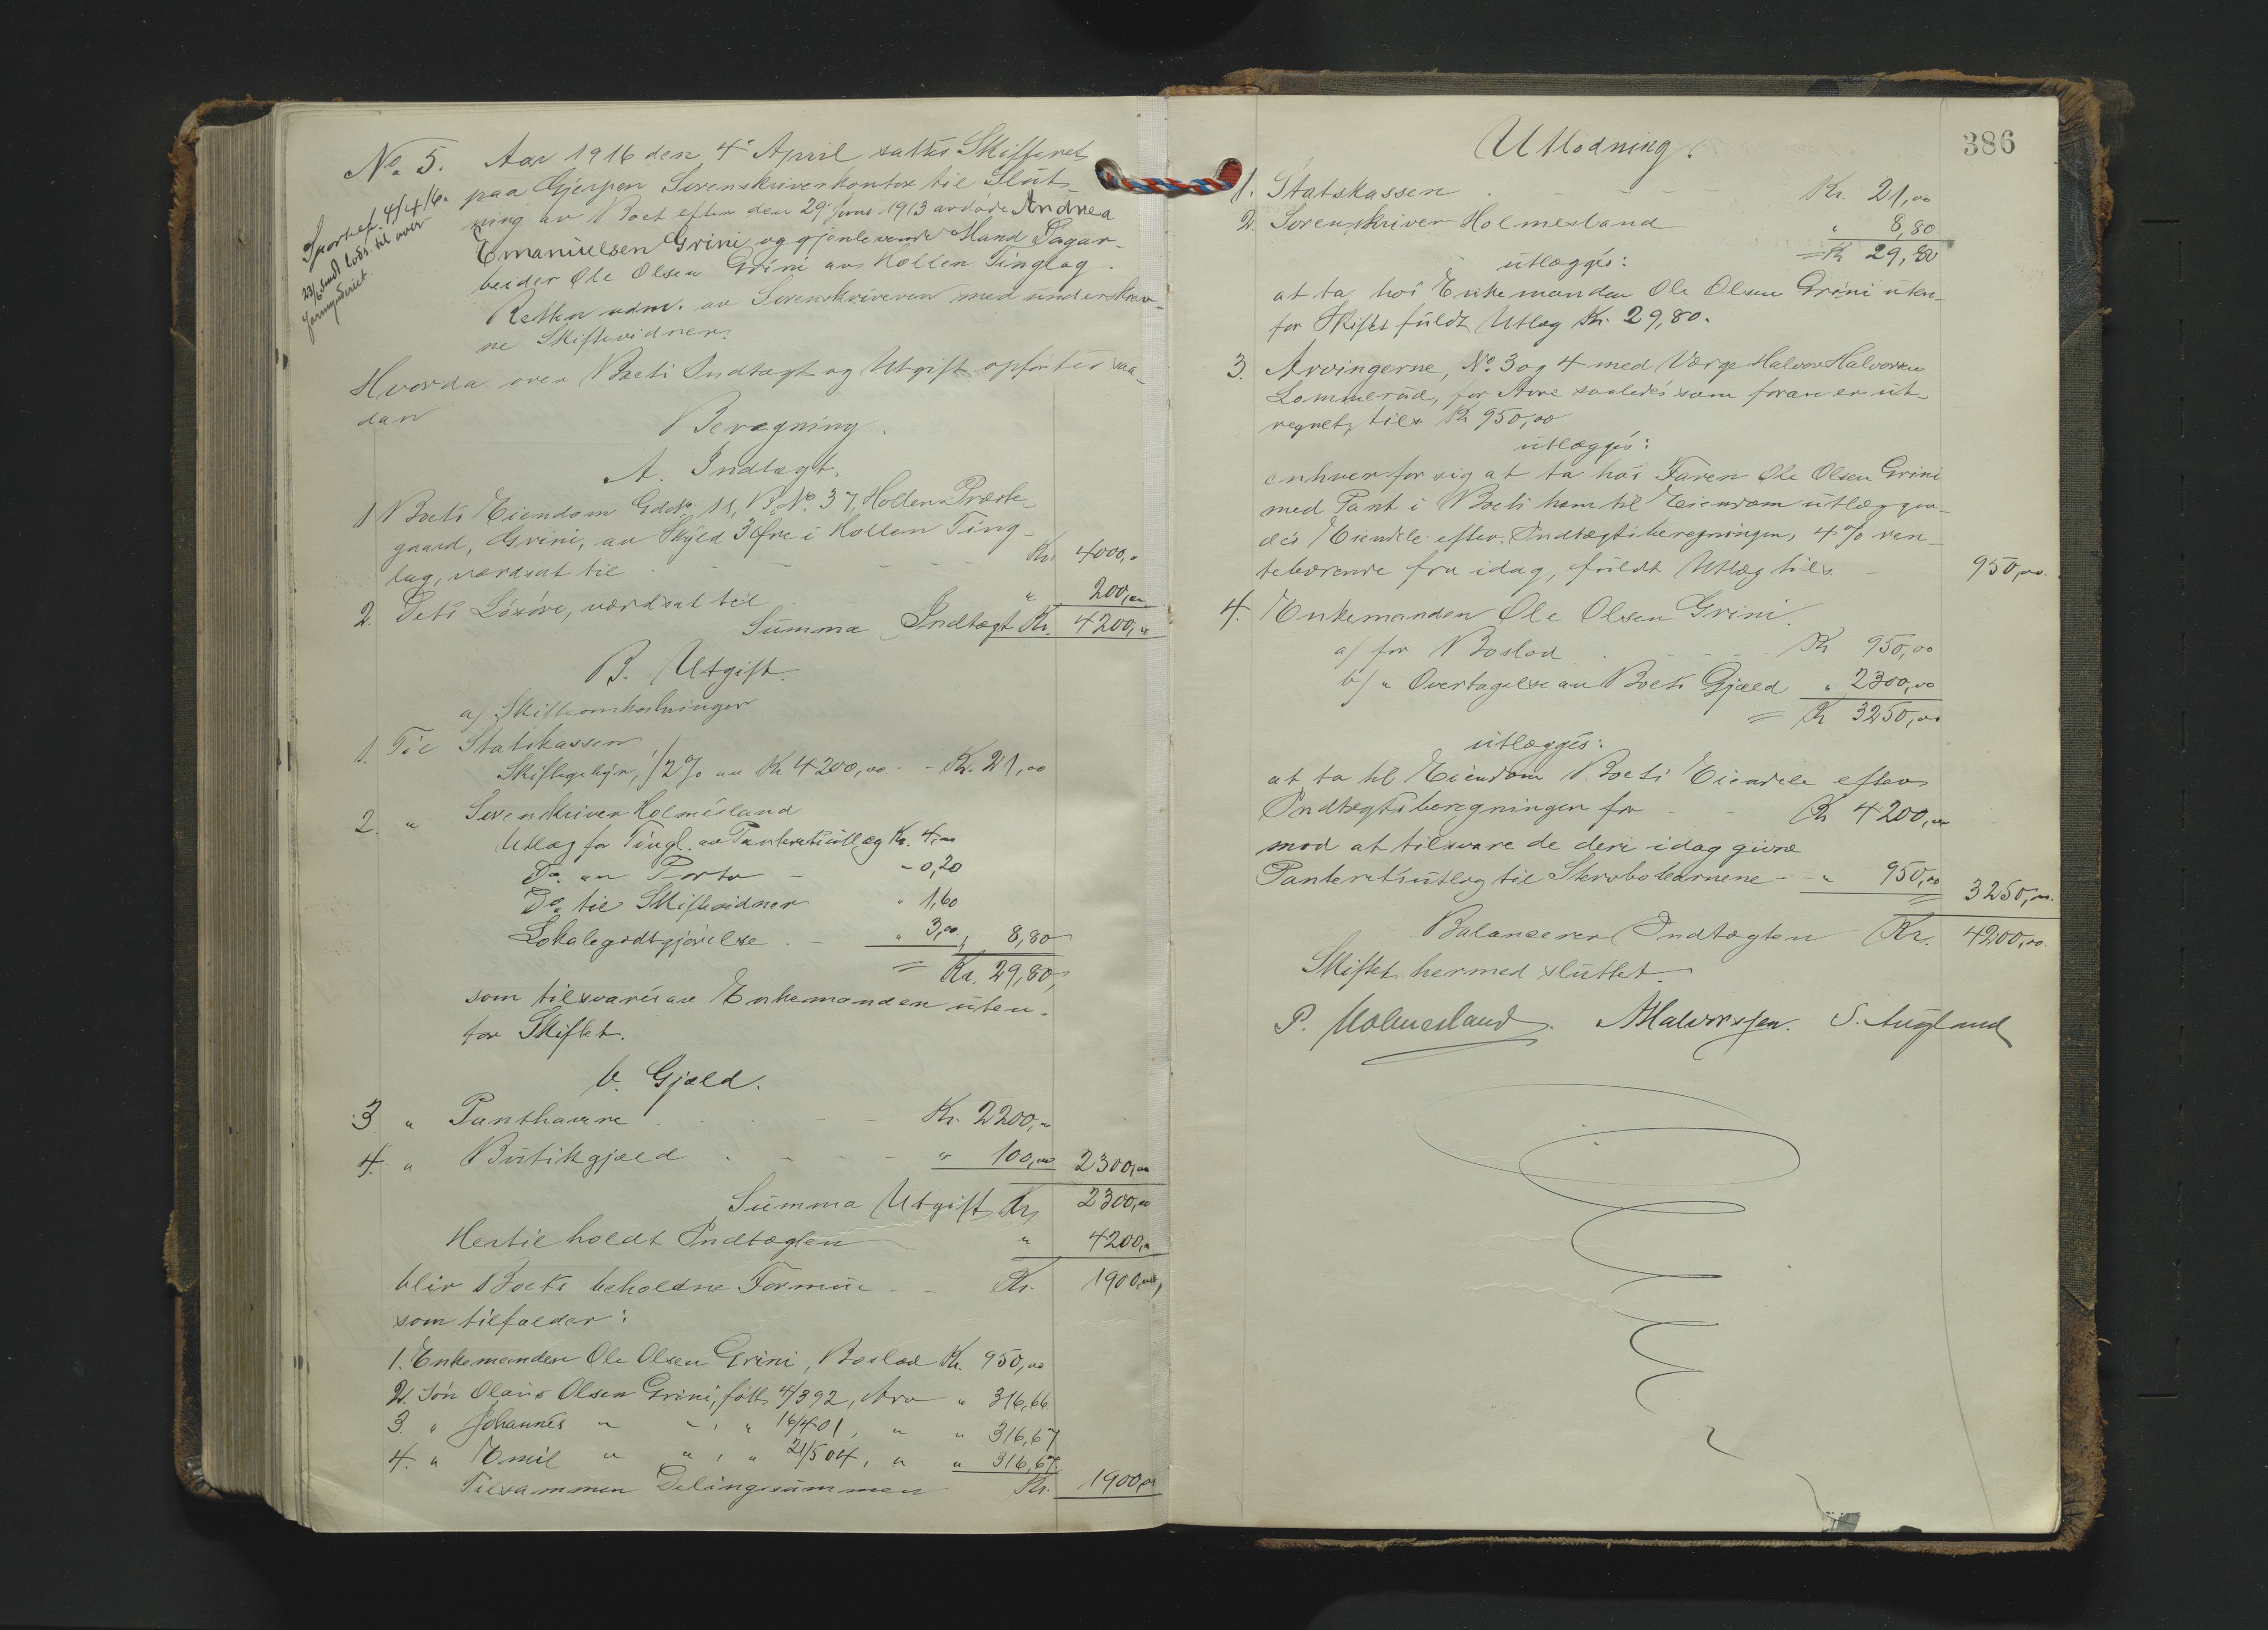 No. 5. Aar 1916 den 4' April sattes Skifteret
paa Gjerpen Sorenskriverkontor til Slut-
ning av Boet efter den 29' Juni 1913 avdøde Andrea
Emanuelsen Grini og gjenlevende Mand Dagar-
beider Ole Olsen Grini av Hollen Tinglag.
Retten adm. av Sorenskriveren med underskrev-
ne Skiftevidner.
Sportelf. 4/4 16.
23/6 Sendt lods. til over
formynderiet
Hvorda over Boets Indtægt og Utgift opførtes saa-
dan
Beregning.
A. Indtægt.
1 Boets Eiendom Gdno. 11, B. No. 37, Hollen Præste-
gaard, Grini, av Skyld 3 Øre i Hollen Ting-
lag, værdsat til Kr. 4000,"
2. Dets Løsøre, værdsat til " 200,00
Summa Indtægt Kr. 4200,00
B. Utgift.
a/ Skifteomkostninger
1. Til Statskassen
Skiftegebyr, 1/2 % av Kr 4200,00 - Kr. 21,00
2. " Sorenskriver Holmesland
Utlæg for Tingl. av Panteretsutlæg Kr. 4,00
Do. av Porto - 0,20
Do. til Skiftevidner " 1,60
Lokalegodtgjørelse " 3,00 " 8,80
= Kr. 29,80,
som tilsvares av Enkemanden uten-
for Skiftet.
b. Gjæld.
3 " Panthavere Kr. 2200,"
4. " Butikgjæld " 100,00 2300,00
Summa Utgift Kr 2300,00
Hertil holdt Indtægten " 4200,"
blir Boets beholdne Formue Kr. 1900,00,
som tilfalder:
1. Enkemanden Ole Olsen Grini, Boslod Kr. 950,00
2. Søn Olaus Olsen Grini, født 4/3 92, Arv " 316,66
3. " Johannes " " , " 16/4 01, " " 316,67
4. " Emil " " , " 21/5 04, " " 316,67
Tilsammen Delingssummen Kr. 1900,00
386
Utlodning.
1. Statskassen Kr. 21,00
2. Sorenskriver Holmesland " 8,80
= Kr 29,80
utlægges:
at ta hos Enkemanden Ole Olsen Grini uten-
for Skiftet fuldt Utlæg Kr. 29,80.
3. Arvingerne, No. 3 og 4 med Værge Halvor Halvorsen
Lommerud, for Arv saaledes som foran er ut-
regnet, tils. Kr 950,00
utlægges:
enhver for sig at ta hos Faren Ole Olsen Grini
med Pant i Boets ham til Eiendom utlæggen-
des Eiendele efter Indtægtsberegningen, 4 % ren-
tebærende fra idag, fuldt Utlæg tils. 950,00.
4. Enkemanden Ole Olsen Grini.
a/ for Boslod Kr 950,00
b/ " Overtagelse av Boets Gjæld " 2300,00
= Kr 3250,00
utlægges:
at ta til Eiendom Boets Eiendele efter
Indtægtsberegningen for Kr 4200,00
mod at tilsvare de deri idag givne
Panteretsutlæg til Stervbobørnene - " 950,00 = 3250,00.
Balancerer Indtægten Kr. 4200,00.
Skiftet hermed sluttet.
P. Holmesland. A Halvorssen. S. Augland